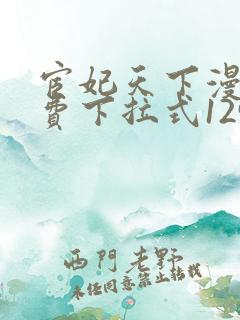 宦妃天下漫
费下拉式12
西門老野
未经同意禁止转载